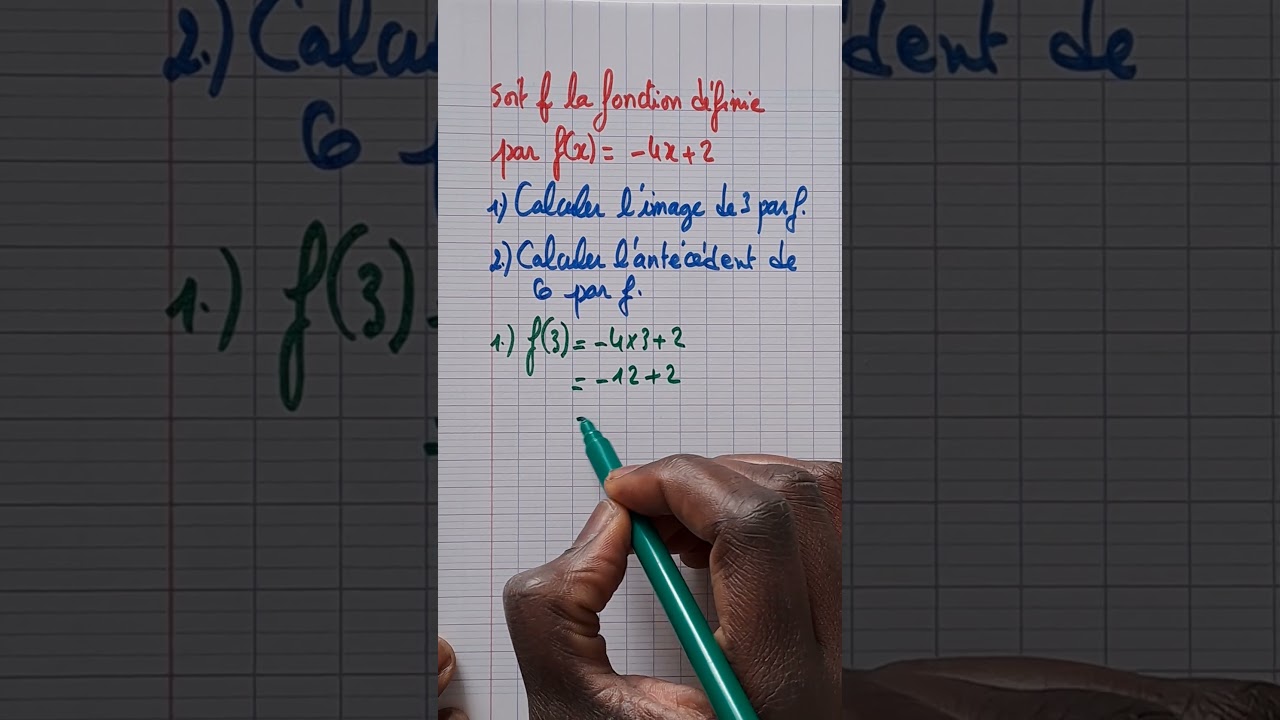 soit f la fonction définie
par f(x) = -4x+2
1.) Calculer l'image de 3 par f.
2.) Calculer l'antécédent de
6 par f.
1.) f(3) = -4x3+2
= -12+2